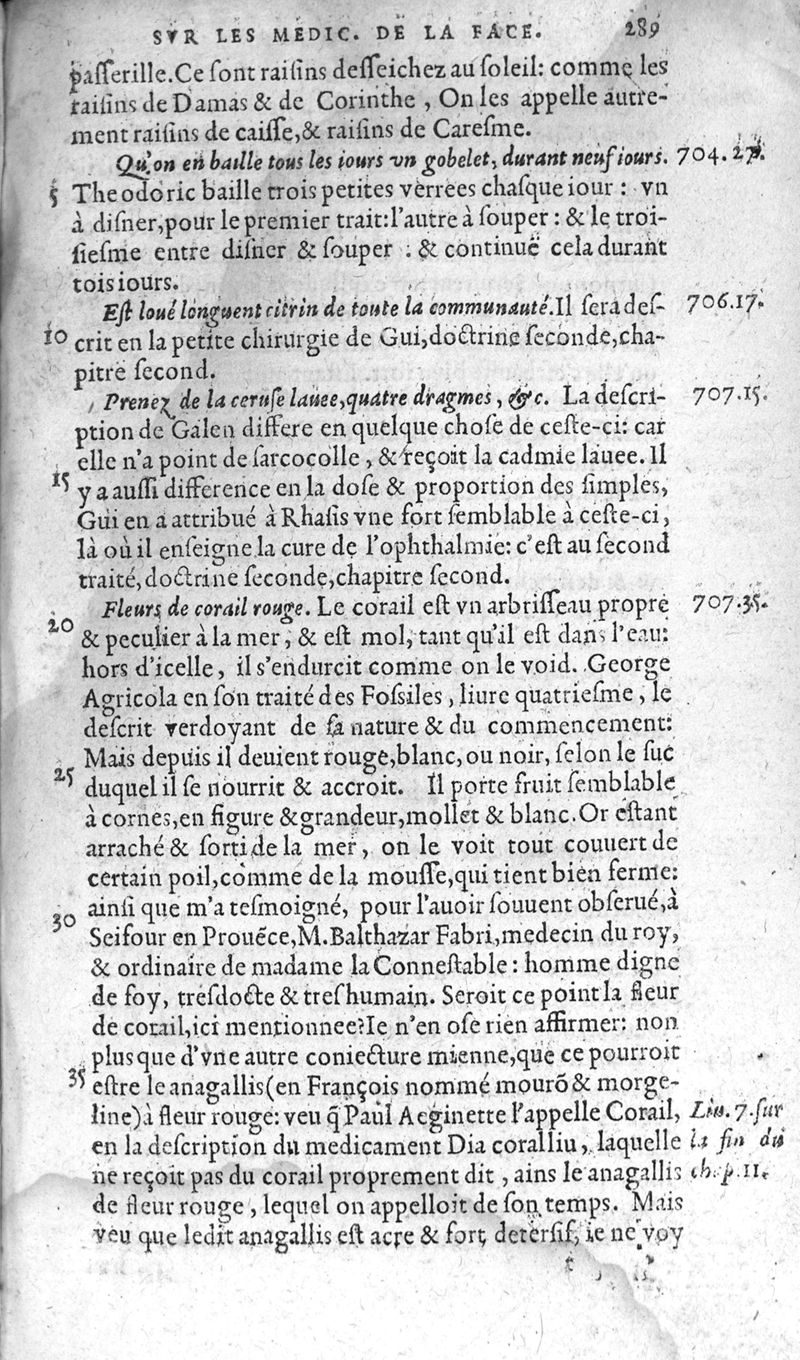 SVR LES MEDIC. DE LA FACE. 289
passerille.Ce sont raisins desseichez au soleil: comme les
raisins de Damas & de Corinthe , On les appelle autre-
ment raisins de caisse,& raisins de Caresme.
Qu'on en baille tous les iours vn gobelet, durant neuf iours. 704.27.
5 Theodoric baille trois petites verrees chasque iour : vn
à disner,pour le premier trait:l'autre à souper : & le troi-
siesme entre disner & souper : & continuë cela durant
tois iours.
Est loué longuent citrin de toute la communauté.Il sera des- 706.17.
10 crit en la petite chirurgie de Gui,doctrine seconde,cha-
pitre second.
Prenez de la ceruse lauee,quatre dragmes, &c. La descri- 707.15.
ption de Galen differe en quelque chose de ceste-ci: car
elle n'a point de sarcocolle , & reçoit la cadmie lauee. Il
15 y a aussi difference en la dose & proportion des simples,
Gui en a attribué à Rhasis vne fort semblable à ceste-ci,
là où il enseigne la cure de l'ophthalmie: c'est au second
traité,doctrine seconde,chapitre second.
Fleurs de corail rouge. Le corail est vn arbrisseau propre 707.35.
20 & peculier à la mer, & est mol, tant qu'il est dans l'eau:
hors d'icelle, il s'endurcit comme on le void. George
Agricola en son traité des Fossiles, liure quatriesme, le
descrit verdoyant de sa nature & du commencement:
Mais depuis il deuient rouge,blanc, ou noir, selon le suc
25 duquel il se nourrit & accroit. Il porte fruit semblable
à cornes,en figure & grandeur,mollet & blanc.Or estant
arraché & sorti de la mer, on le voit tout couuert de
certain poil,comme de la mousse,qui tient bien ferme:
ainsi que m'a tesmoigné, pour l'auoir souuent obserué,à
30 Seifour en Prouẽce,M.Balthazar Fabri,medecin du roy,
& ordinaire de madame la Connestable : homme digne
de foy, tresdocte & treshumain. Seroit ce point la fleur
de corail,ici mentionnee?Ie n'en ose rien affirmer: non
plus que d'vne autre coniecture mienne,que ce pourroit
35 estre le anagallis(en François nommé mourõ & morge-
line)à fleur rouge: veu q̃ Paul Aeginette l'appelle Corail, Liu. 7. sur
en la description du medicament Dia coralliu, laquelle la fin du
ne reçoit pas du corail proprement dit , ains le anagallis chap. 11.
de fleur rouge , lequel on appelloit de son temps. Mais
veu que ledit anagallis est acre & fort detersif, ie ne voy
t